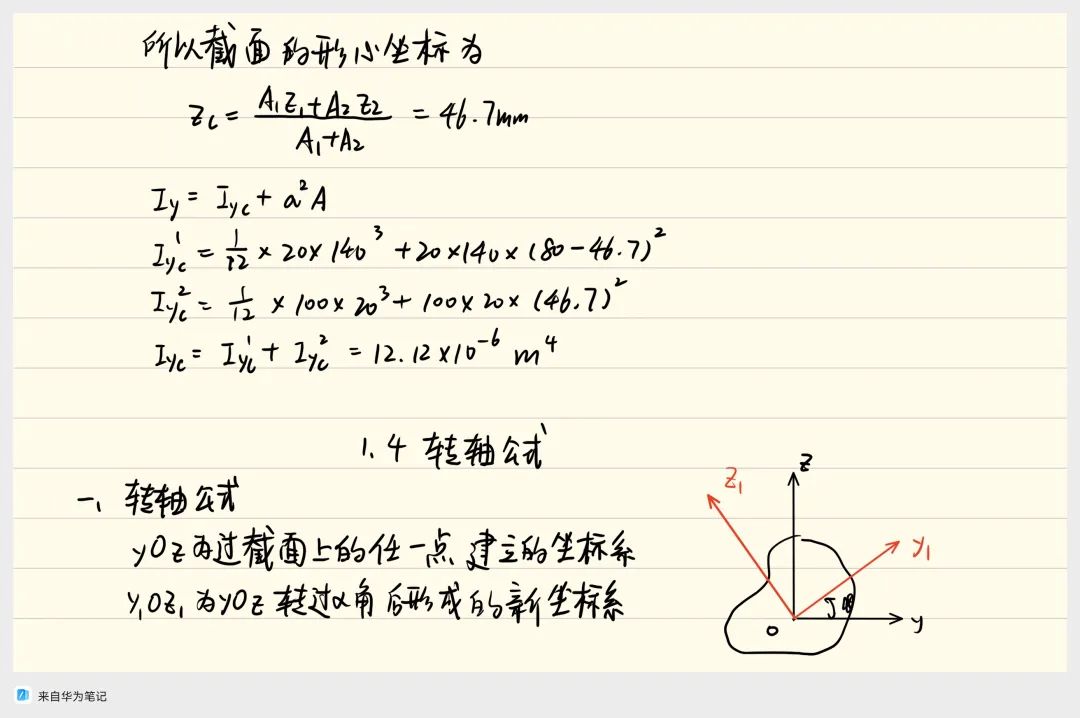 所以截面的形心坐标为
Zc = (A₁Z₁+A₂Z₂)/(A₁+A₂) = 46.7mm
Iy = Iyc + a²A
Iyc¹ = 1/12 × 20×140³ + 20×140×(80-46.7)²
Iyc² = 1/12 × 100×20³ + 100×20×(46.7)²
Iyc = Iyc¹ + Iyc² = 12.12×10⁻⁶ m⁴
1.4 转轴公式
一、转轴公式
yOz为过截面上的任一点建立的坐标系
y₁Oz₁为yOz转过α角后形成的新坐标系
z
z₁
y₁
y
O
来自华为笔记